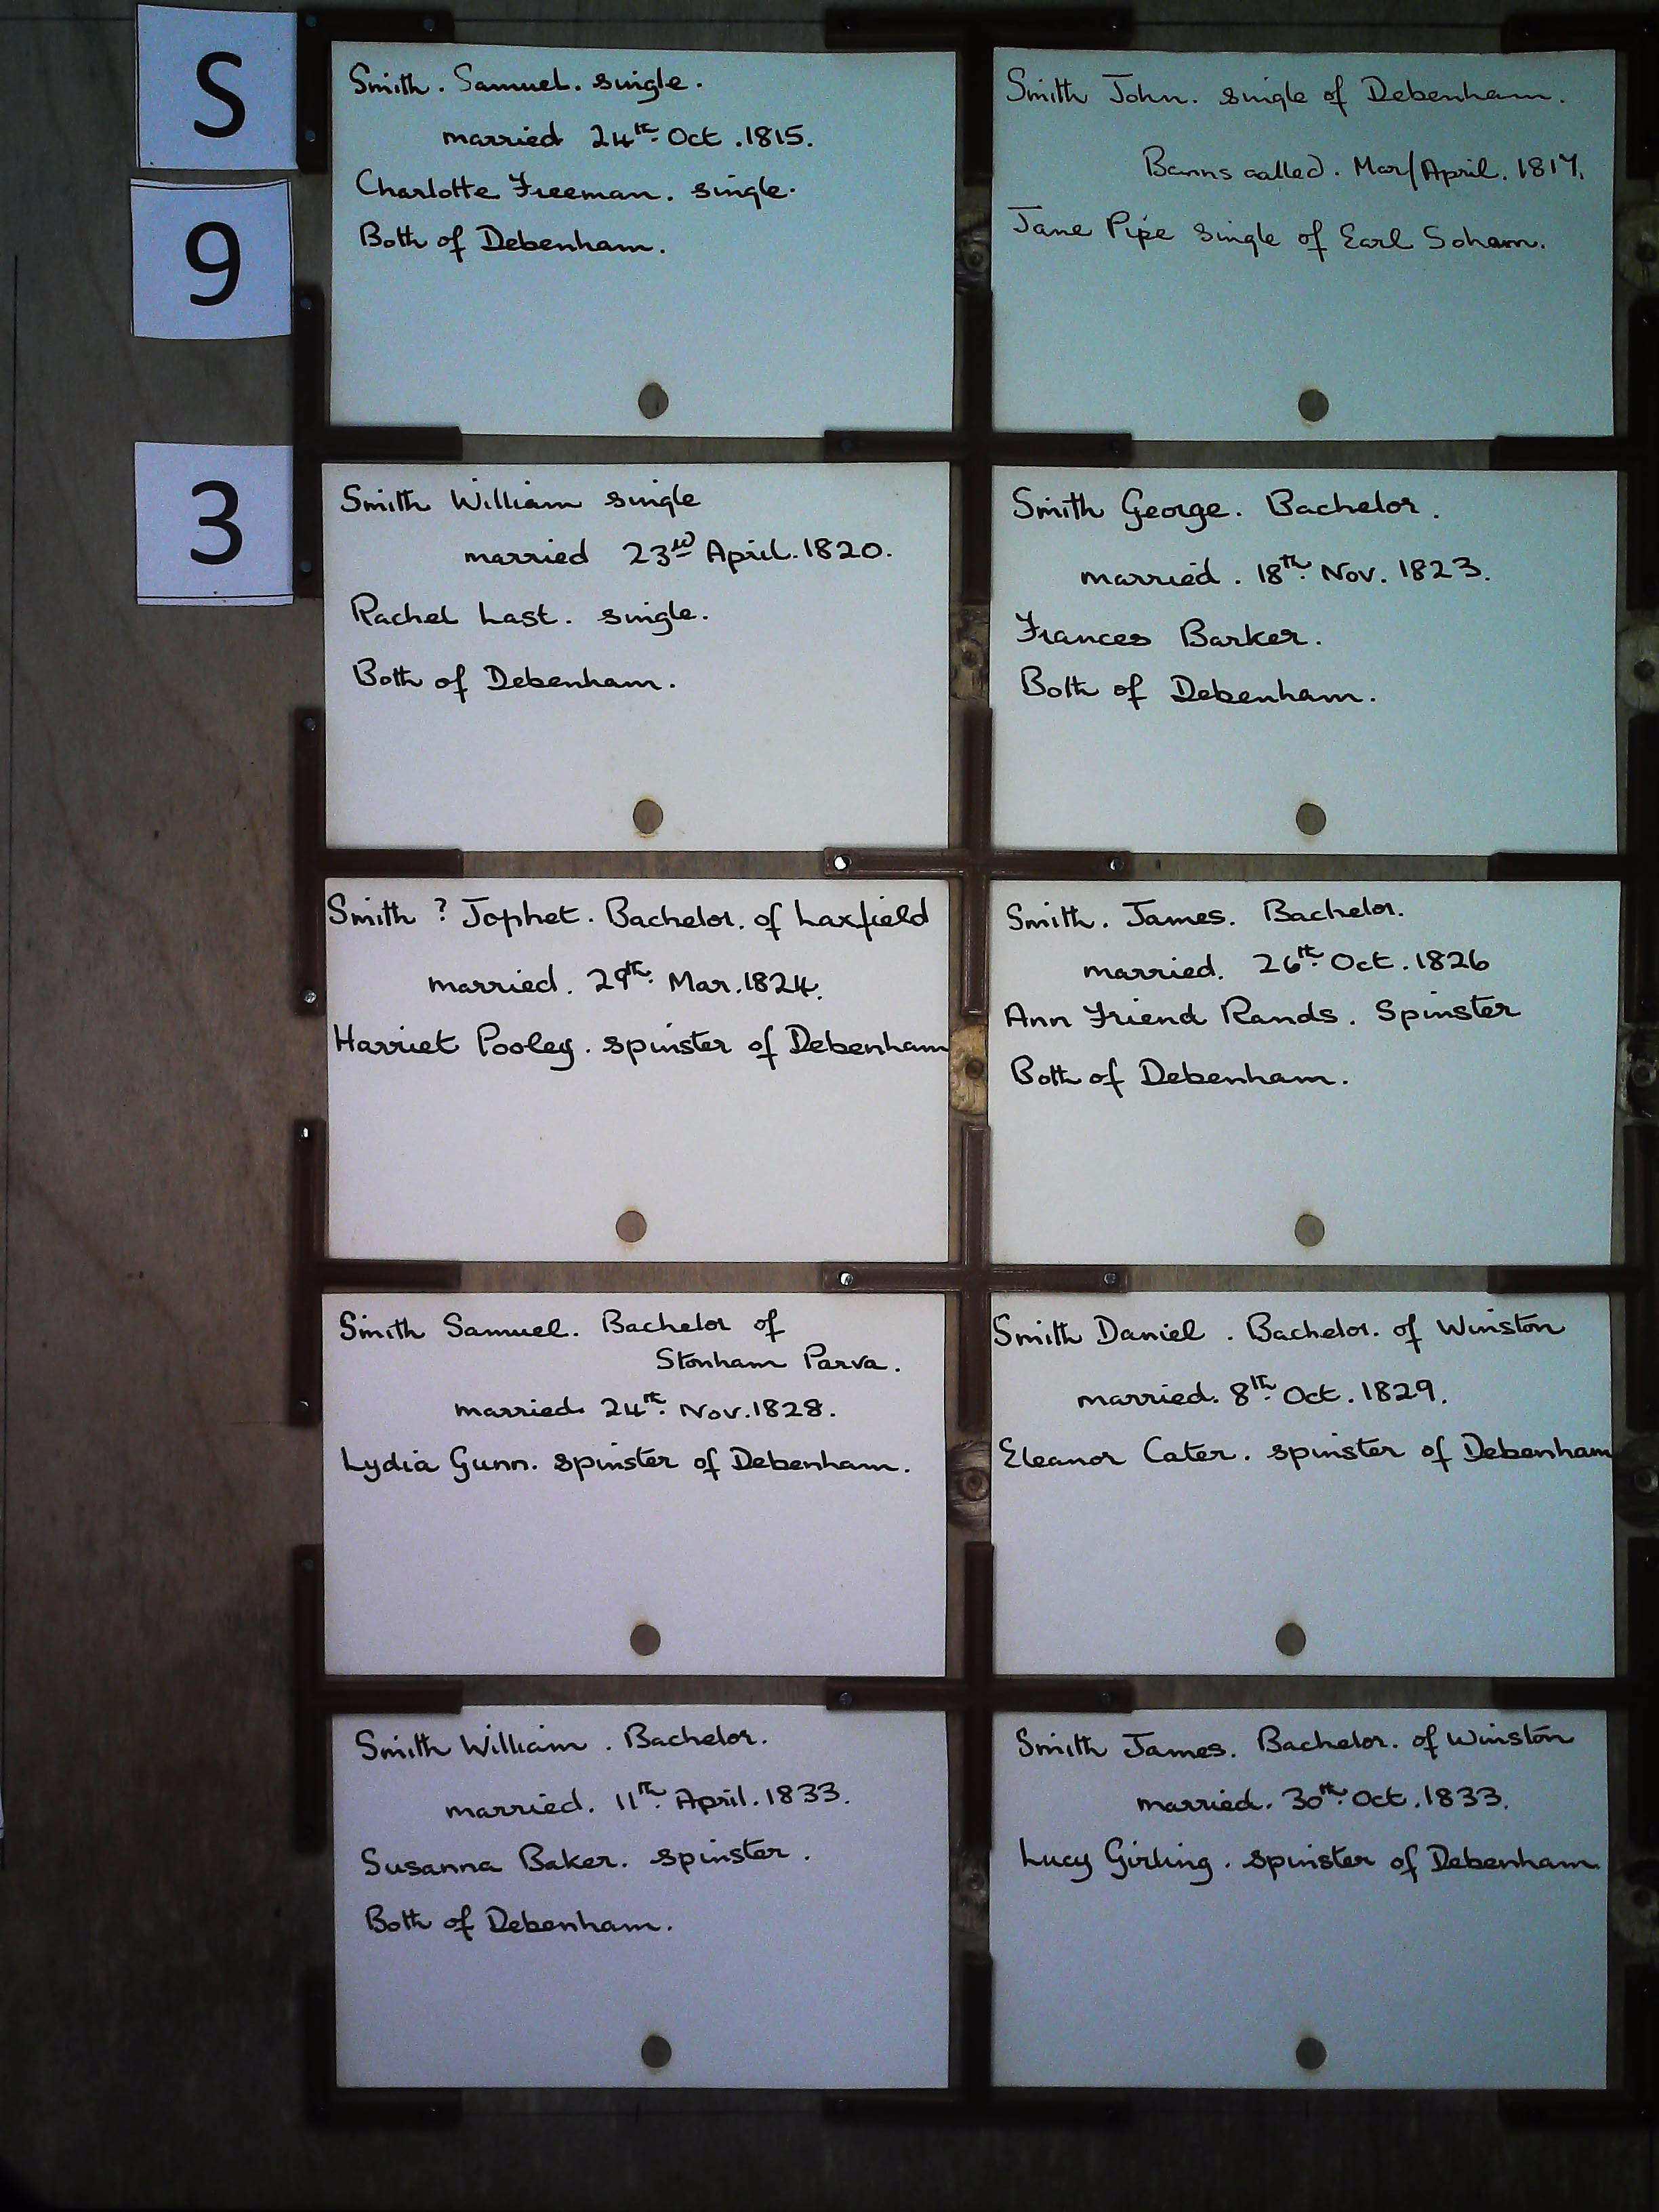 S
9
3
Smith. Samuel. single.
married 24th Oct. 1815.
Charlotte Freeman. single.
Both of Debenham.
Smith John. single of Debenham.
Banns called. Mar/April. 1817.
Jane Pipe single of Earl Soham.
Smith William single
married 23rd April. 1820.
Rachel Last. single.
Both of Debenham.
Smith George. Bachelor.
married. 18th Nov. 1823.
Frances Barker.
Both of Debenham.
Smith ? Jophet. Bachelor. of Laxfield
married. 29th Mar. 1824.
Harriet Pooley. spinster of Debenham
Smith. James. Bachelor.
married. 26th Oct. 1826
Ann Friend Rands. Spinster
Both of Debenham.
Smith Samuel. Bachelor of
Stonham Parva.
married. 24th Nov. 1828.
Lydia Gunn. spinster of Debenham.
Smith Daniel. Bachelor. of Winston
married. 8th Oct. 1829.
Eleanor Cater. spinster of Debenham
Smith William. Bachelor.
married. 11th April. 1833.
Susanna Baker. spinster.
Both of Debenham.
Smith James. Bachelor. of Winston
married. 30th Oct. 1833.
Lucy Girling. spinster of Debenham.